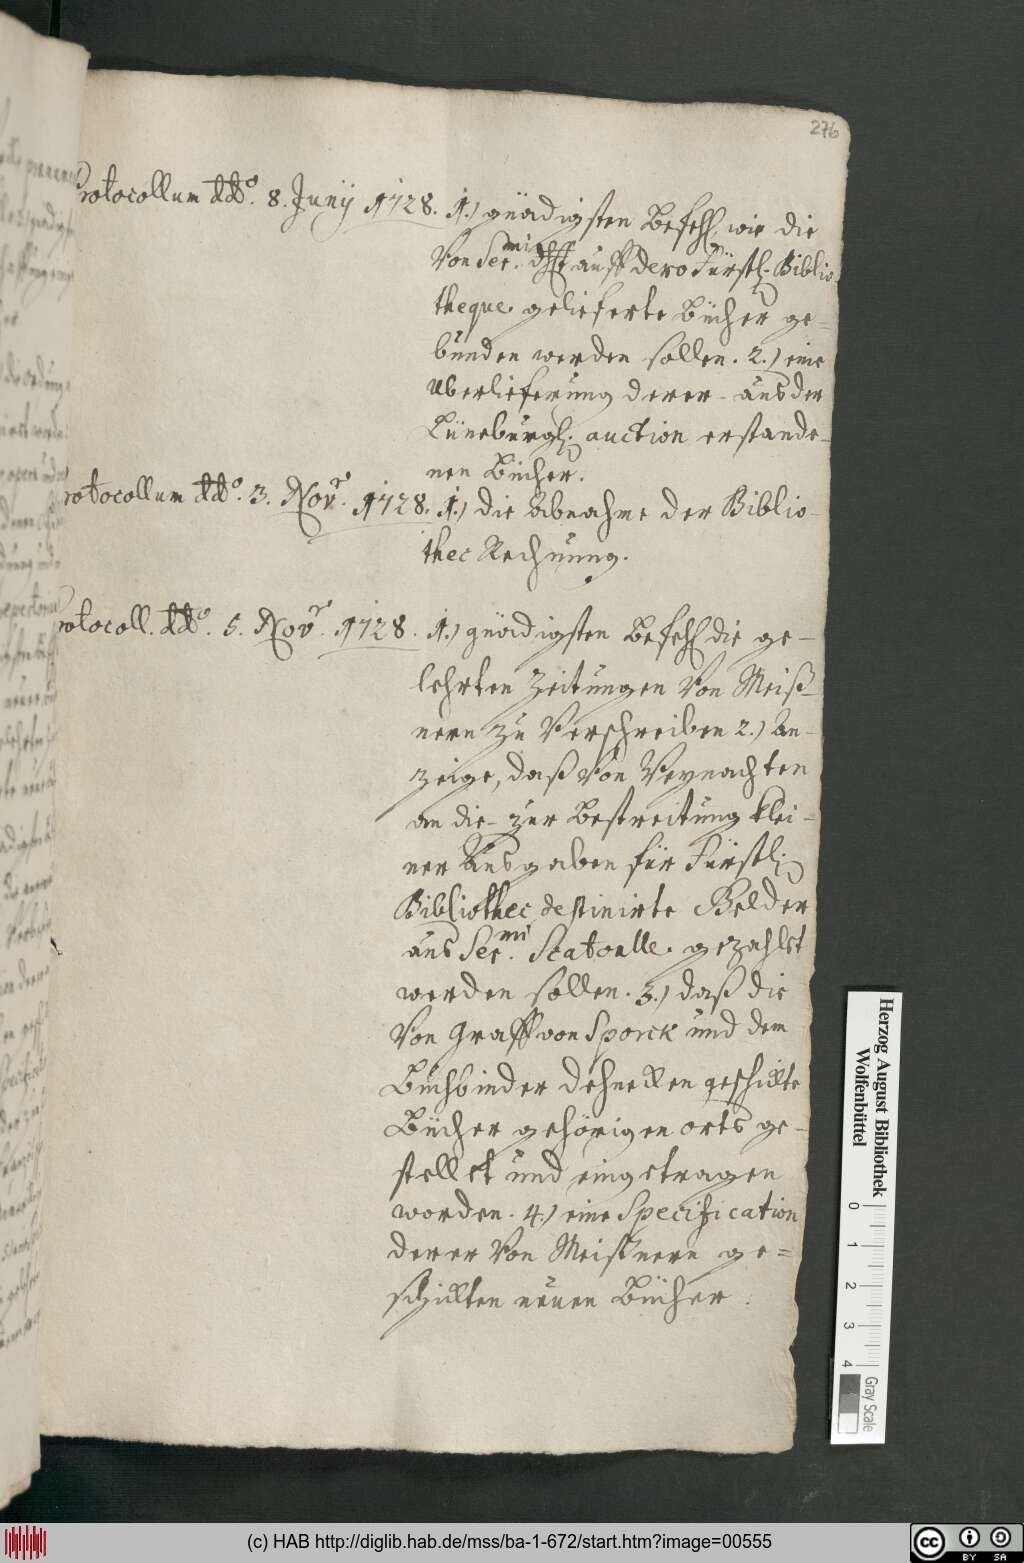 276
Protocollum ddo. 8. Junij 1728. 1.) gnädigsten Befehl, wie die
Von Sermi dhlt auff dero Fürstl. Biblio-
theque gelieferte Bücher ge-
bunden werden sollen. 2.) eine
Uberlieferung derer - aus der
Lüneburgl. auction erstande-
nen Bücher.
Protocollum ddo. 3. Novr. 1728. 1.) die Abnahme der Biblio-
thec Rechnung.
Protocoll. ddo. 5. Novr. 1728. 1.) gnädigsten Befehl die ge-
lehrten Zeitungen Von Meiß-
nern zu Verschreiben 2.) An-
zeige, daß Von Weynachten
an die - zur Bestreitung klei-
ner Ausgaben für Fürstl.
Bibliothec destinirte Gelder
aus Sermi. Scatoulle gezahlet
werden sollen. 3.) daß die
Von Graff von Sporck und dem
Buchbinder Dehnecken geschickte
Bücher gehörigen orts ge-
stellet und eingetragen
worden. 4.) eine Specification
derer Von Meißnern ge=
schickten neuen Bücher.
Herzog August Bibliothek
Wolfenbüttel
0
1
2
3
4
Gray Scale
(c) HAB http://diglib.hab.de/mss/ba-1-672/start.htm?image=00555
cc BY SA